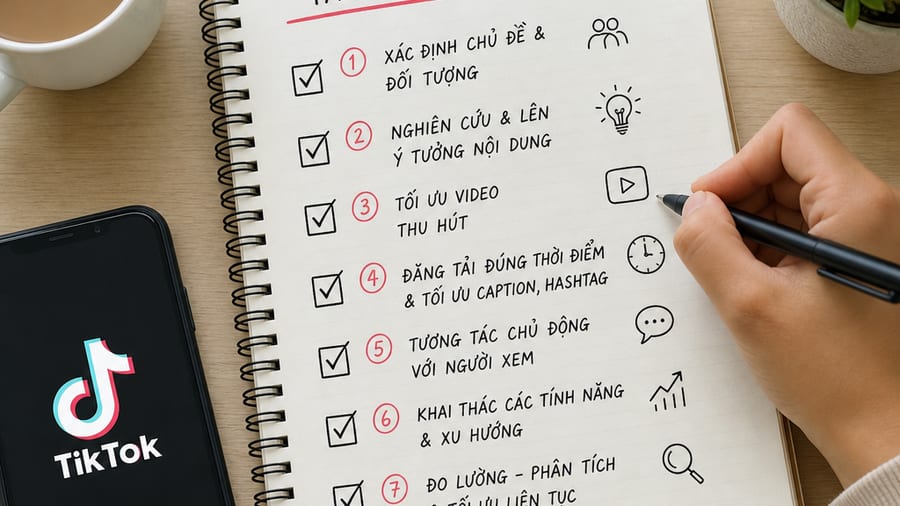 1 XÁC ĐỊNH CHỦ ĐỀ &
ĐỐI TƯỢNG
2 NGHIÊN CỨU & LÊN
Ý TƯỞNG NỘI DUNG
3 TỐI ƯU VIDEO
THU HÚT
4 ĐĂNG TẢI ĐÚNG THỜI ĐIỂM
& TỐI ƯU CAPTION, HASHTAG
5 TƯƠNG TÁC CHỦ ĐỘNG
VỚI NGƯỜI XEM
6 KHAI THÁC CÁC TÍNH NĂNG
& XU HƯỚNG
7 ĐO LƯỜNG – PHÂN TÍCH
TỐI ƯU LIÊN TỤC
TikTok